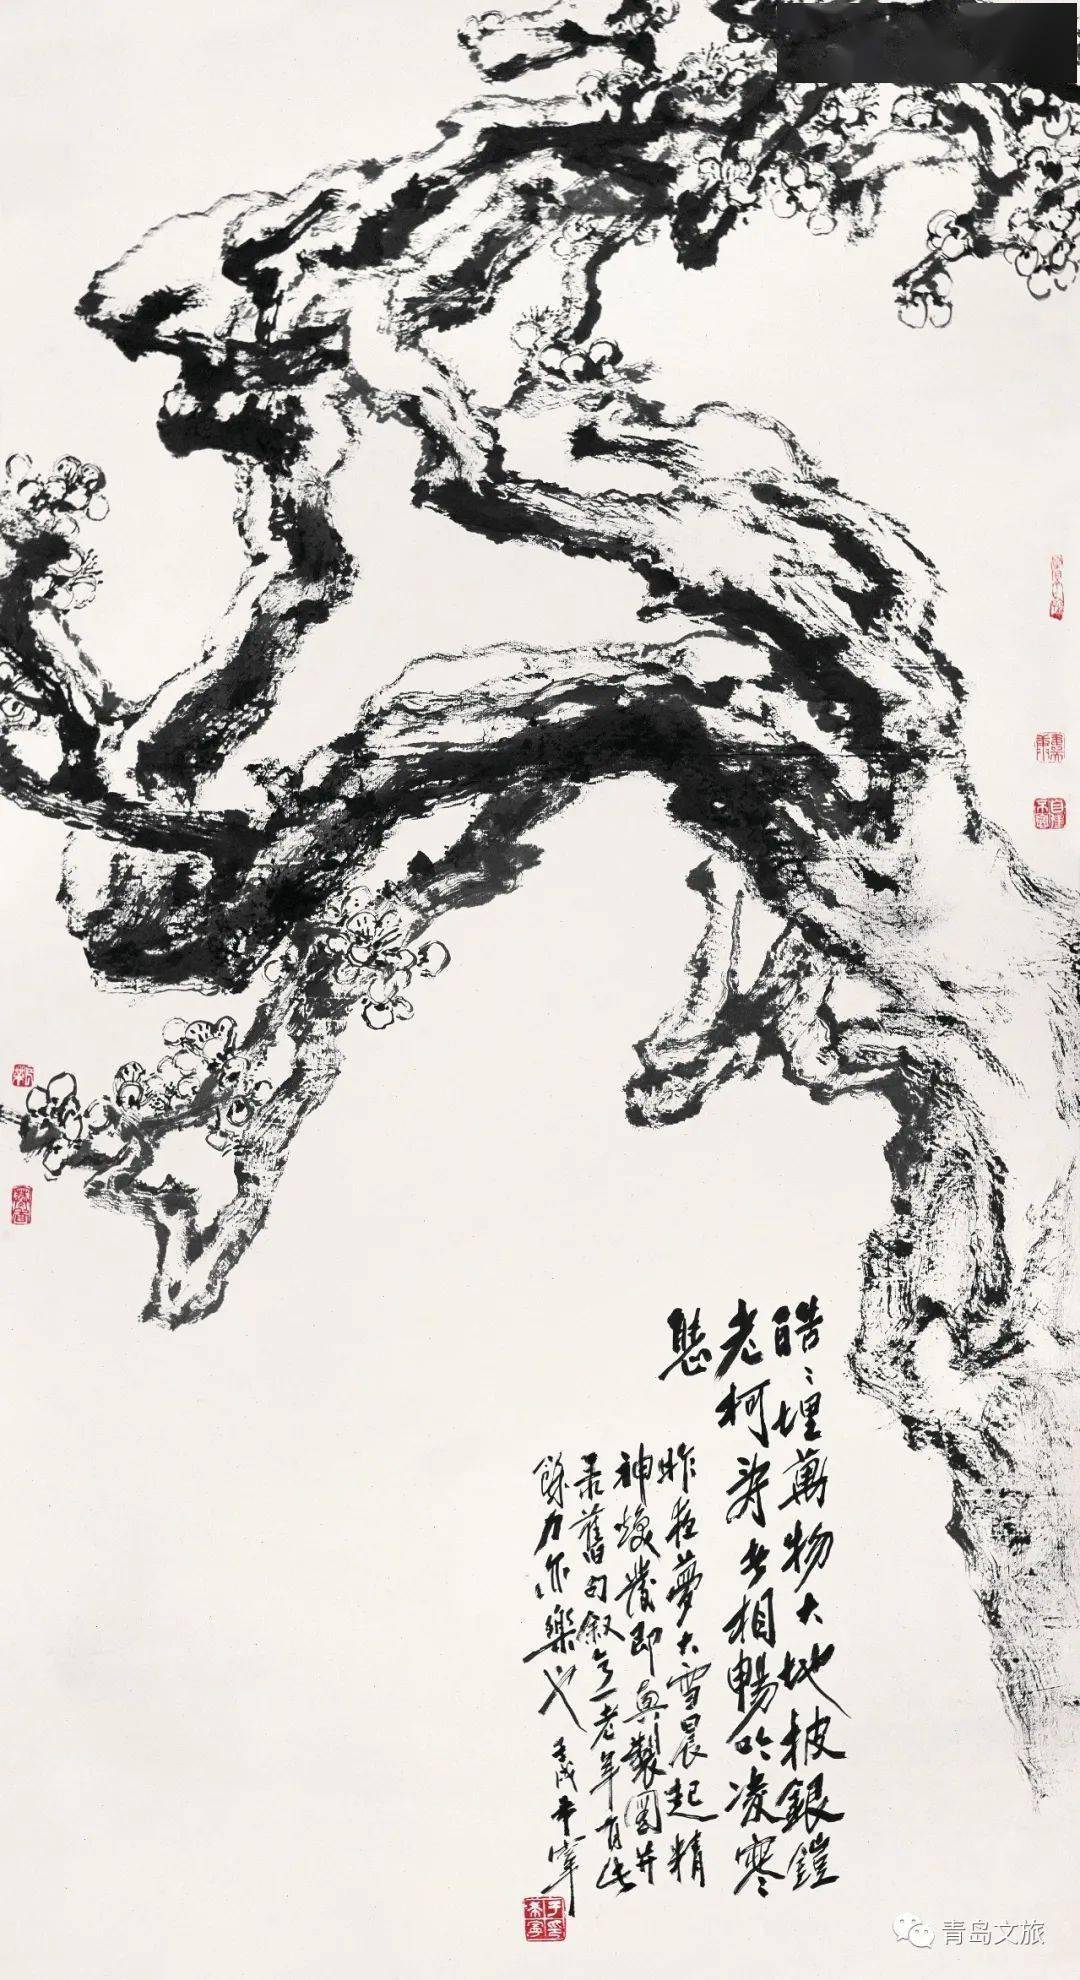 皓〻埋萬物大地披銀鎧
老柯詩者相暢吟凌寒
聴
昨夜夢大雪晨起精
神煥發即興製圖并
录舊句叙之老年有此
餘力亦樂也
壬戌希寧
于氏
希寧
青岛文旅